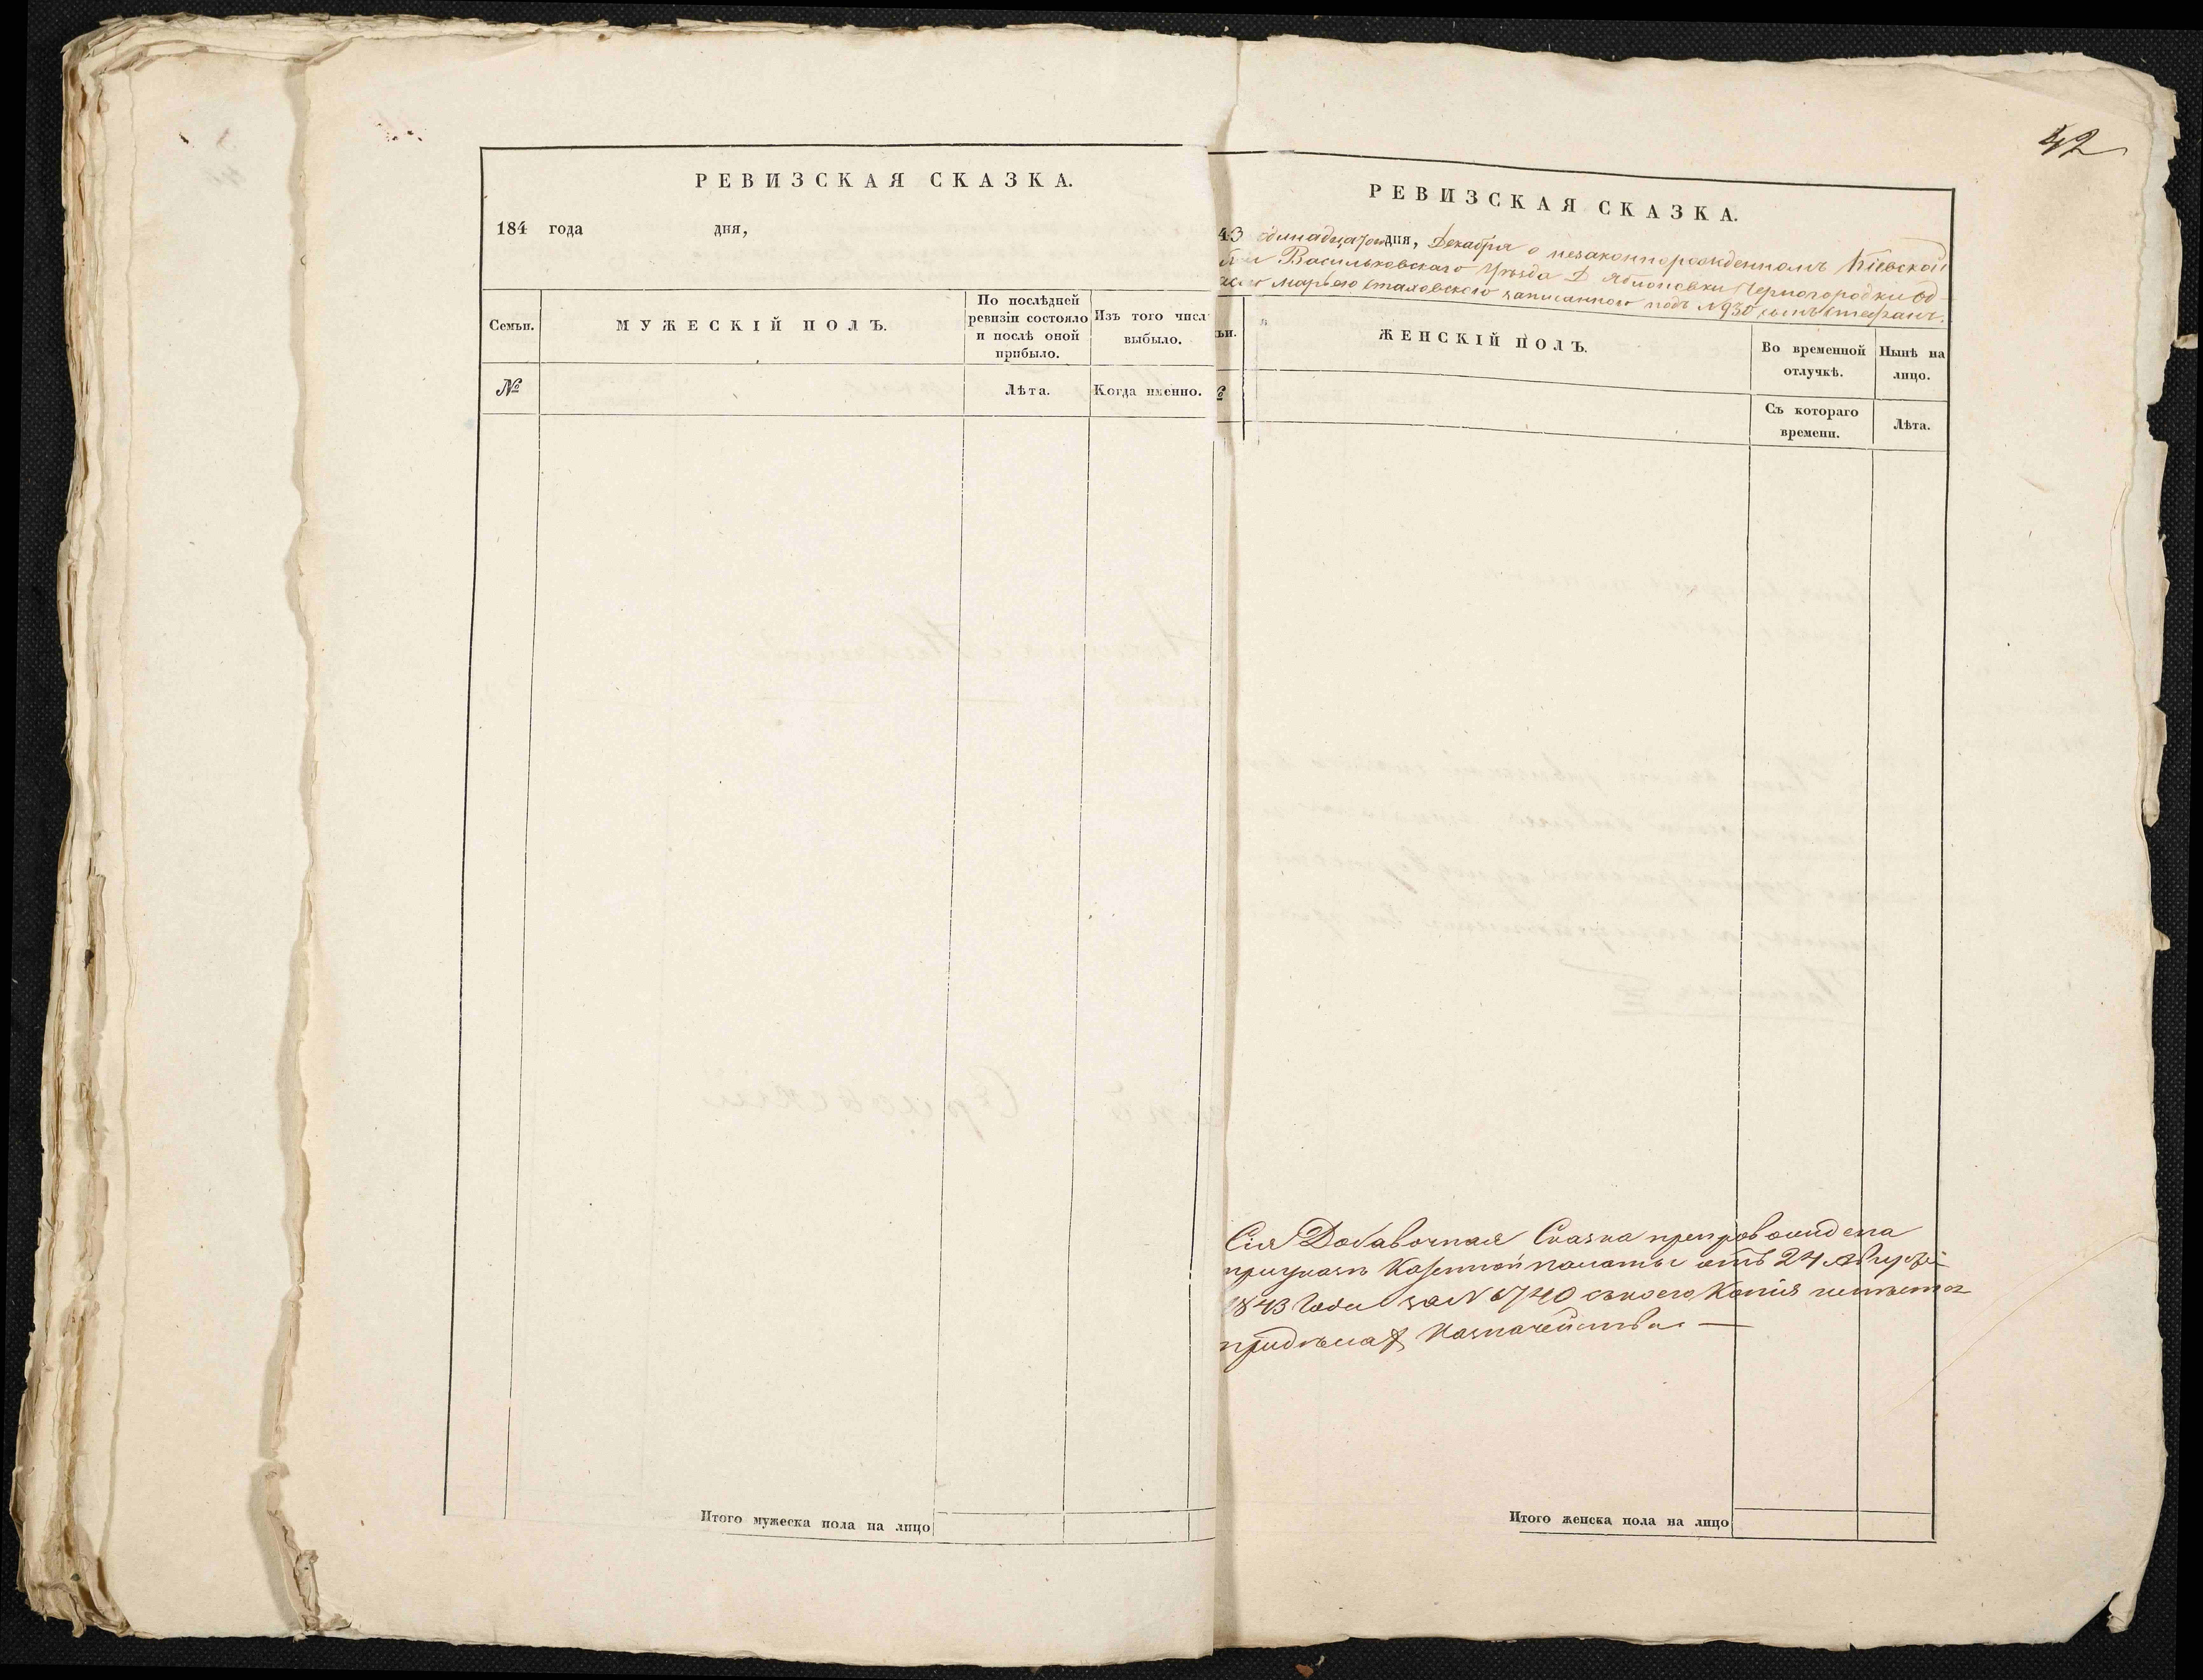 РЕВИЗСКАЯ СКАЗКА.
184 года дня,
Семьи.
МУЖЕСКІЙ ПОЛЪ.
По послѣдней
ревизіи состояло
и послѣ оной
прибыло.
Изъ того числ
выбыло.
№
Лѣта.
Когда именно.
Итого мужеска пола на лицо
42
РЕВИЗСКАЯ СКАЗКА.
43 одинадцатого дня, Декабря о незаконнорожденномъ Кіевской
Васильковскаго Уѣзда Д Яблоновки Черногородки Од
записанного подъ №930 сынъ Стефанъ.
ьи.
ЖЕНСКІЙ ПОЛЪ.
Во временной
отлучкѣ.
Нынѣ на
лицо.
Съ котораго
времени.
Лѣта.
Сія Добавочная Сказка препровождена
при указѣ Казенной палаты отъ 24 Августа
1843 Года за N 6740 съ коего Копія
Казначейства —
Итого женска пола на лицо